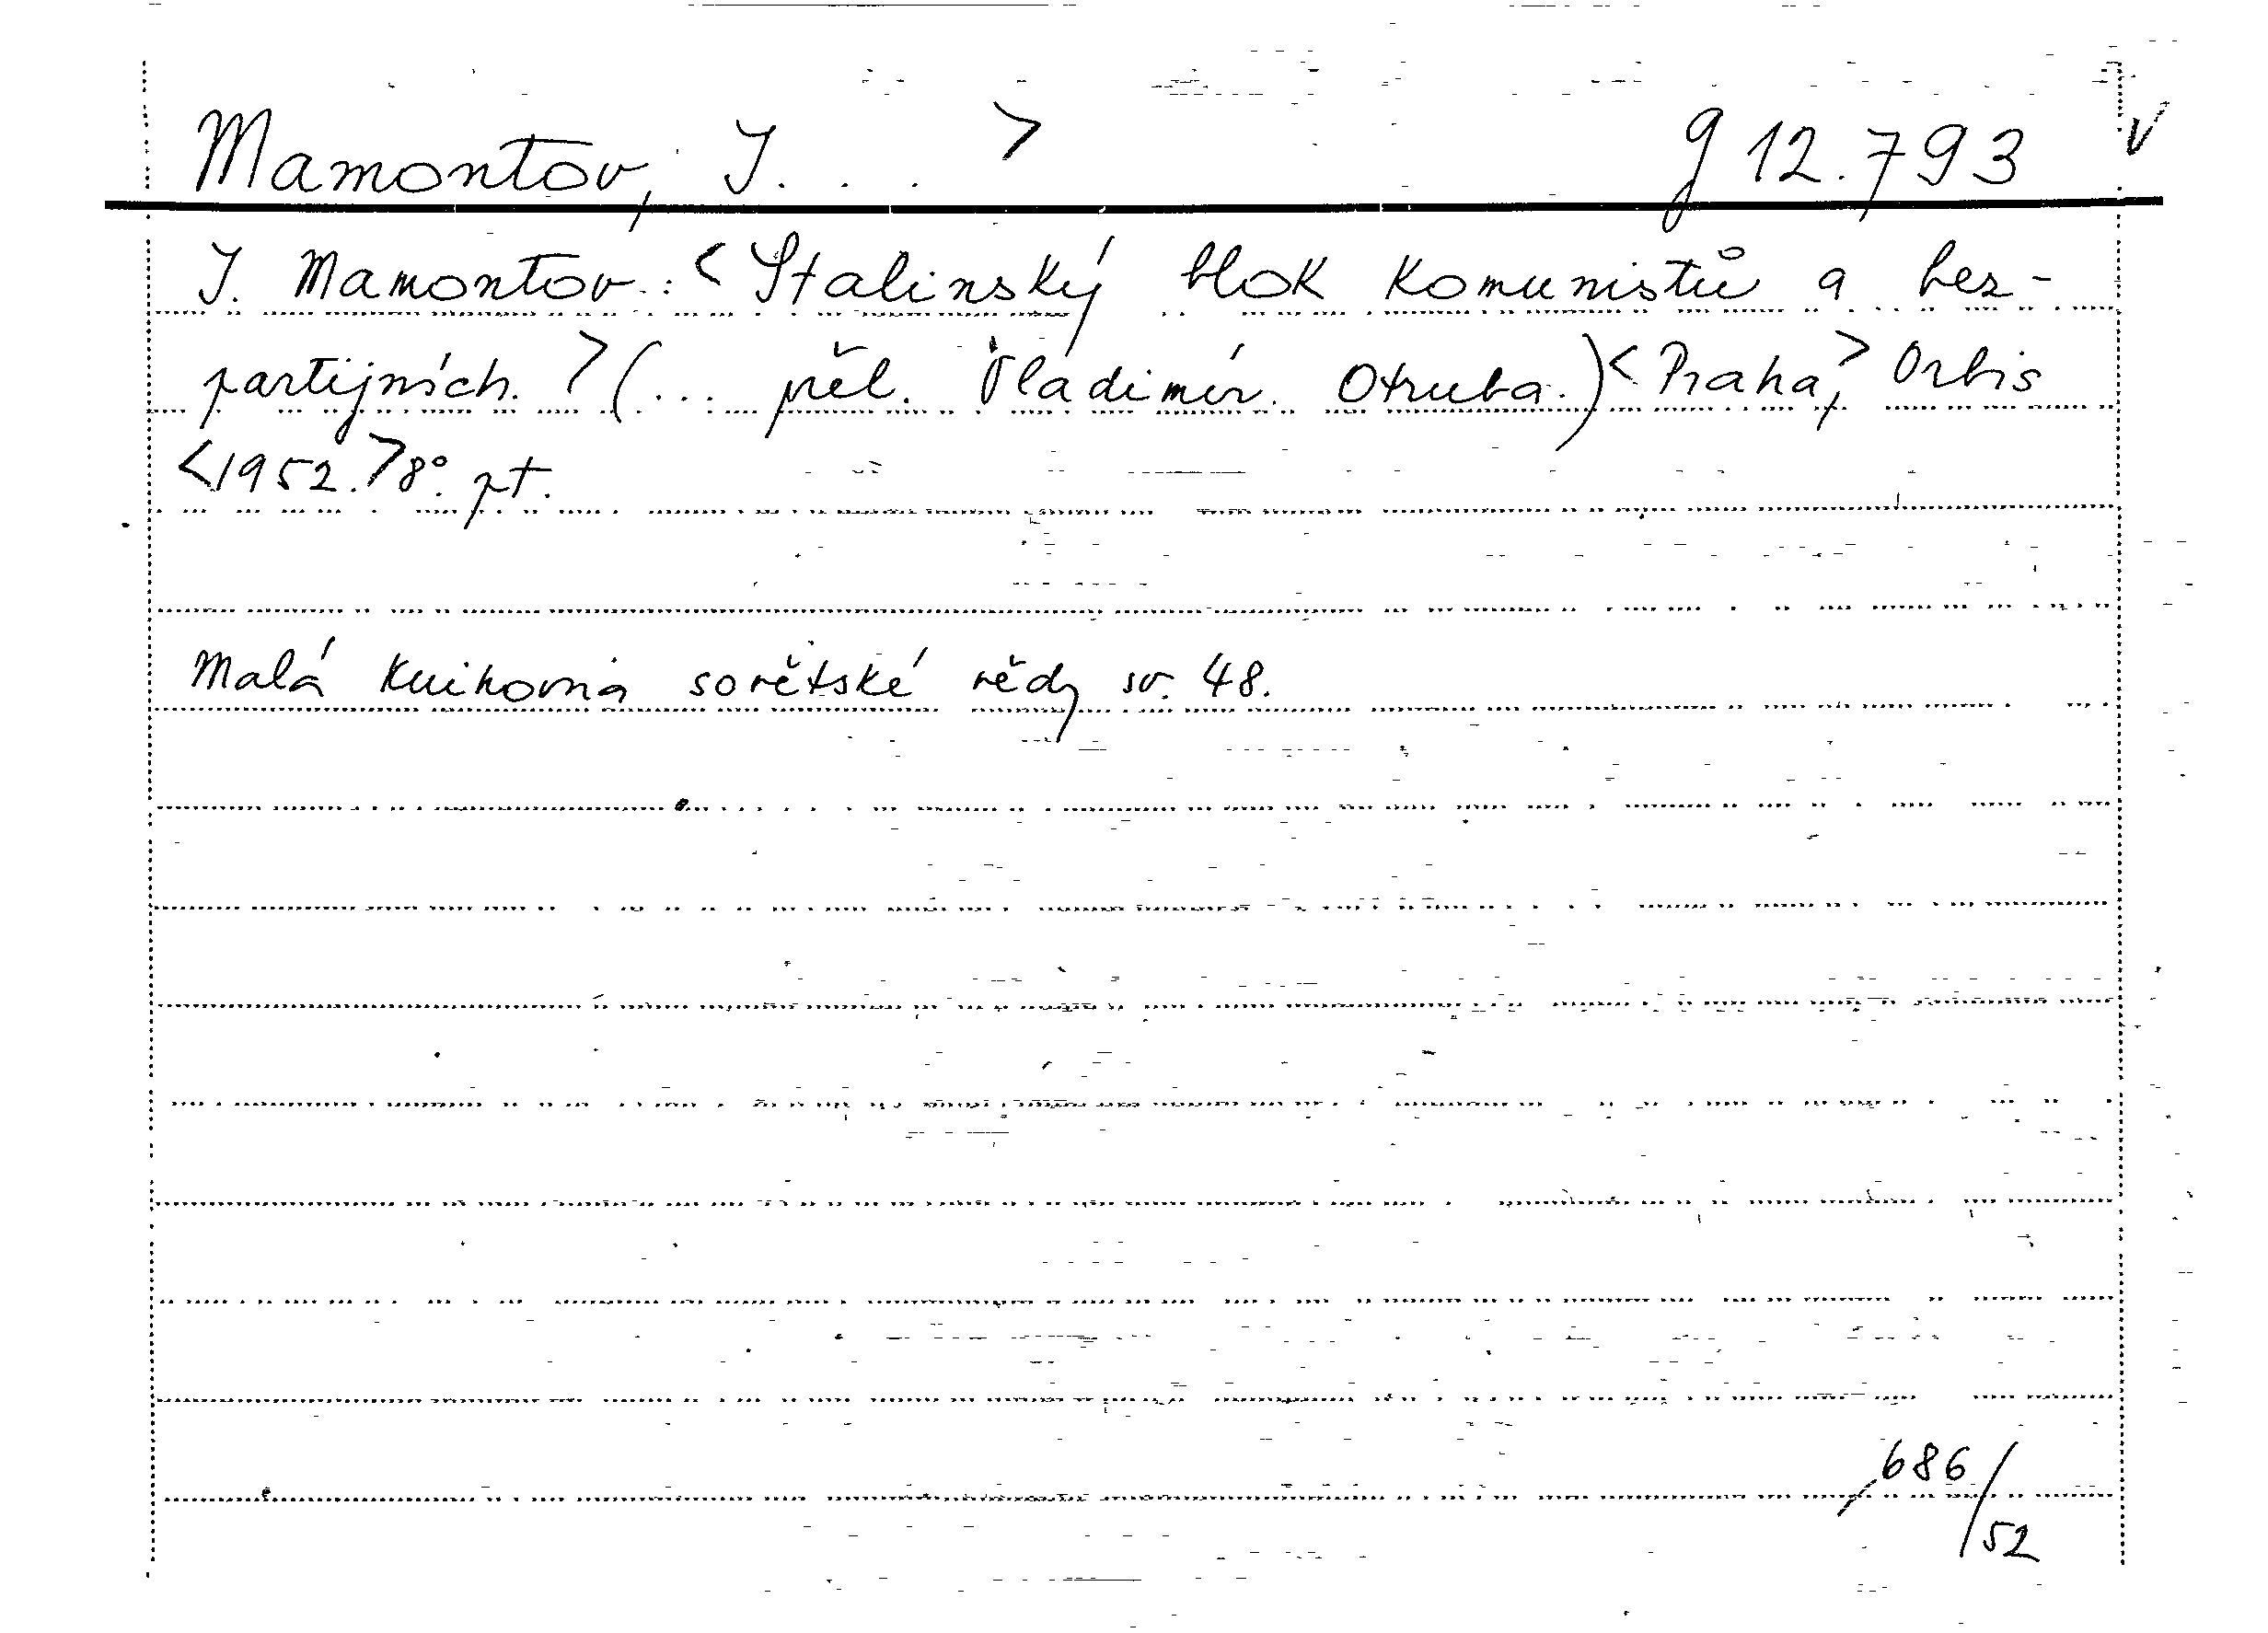 Mamontov, J. . . > g 12.793 v
J. Mamontov: <Stalinský blok komunistů a bez-
partijních.> (... přel. Vladimír Otruba.) <Praha,> Orbis
<1952.> 8°. pt.
Malá knihovna sovětské vědy sv. 48.
686/52